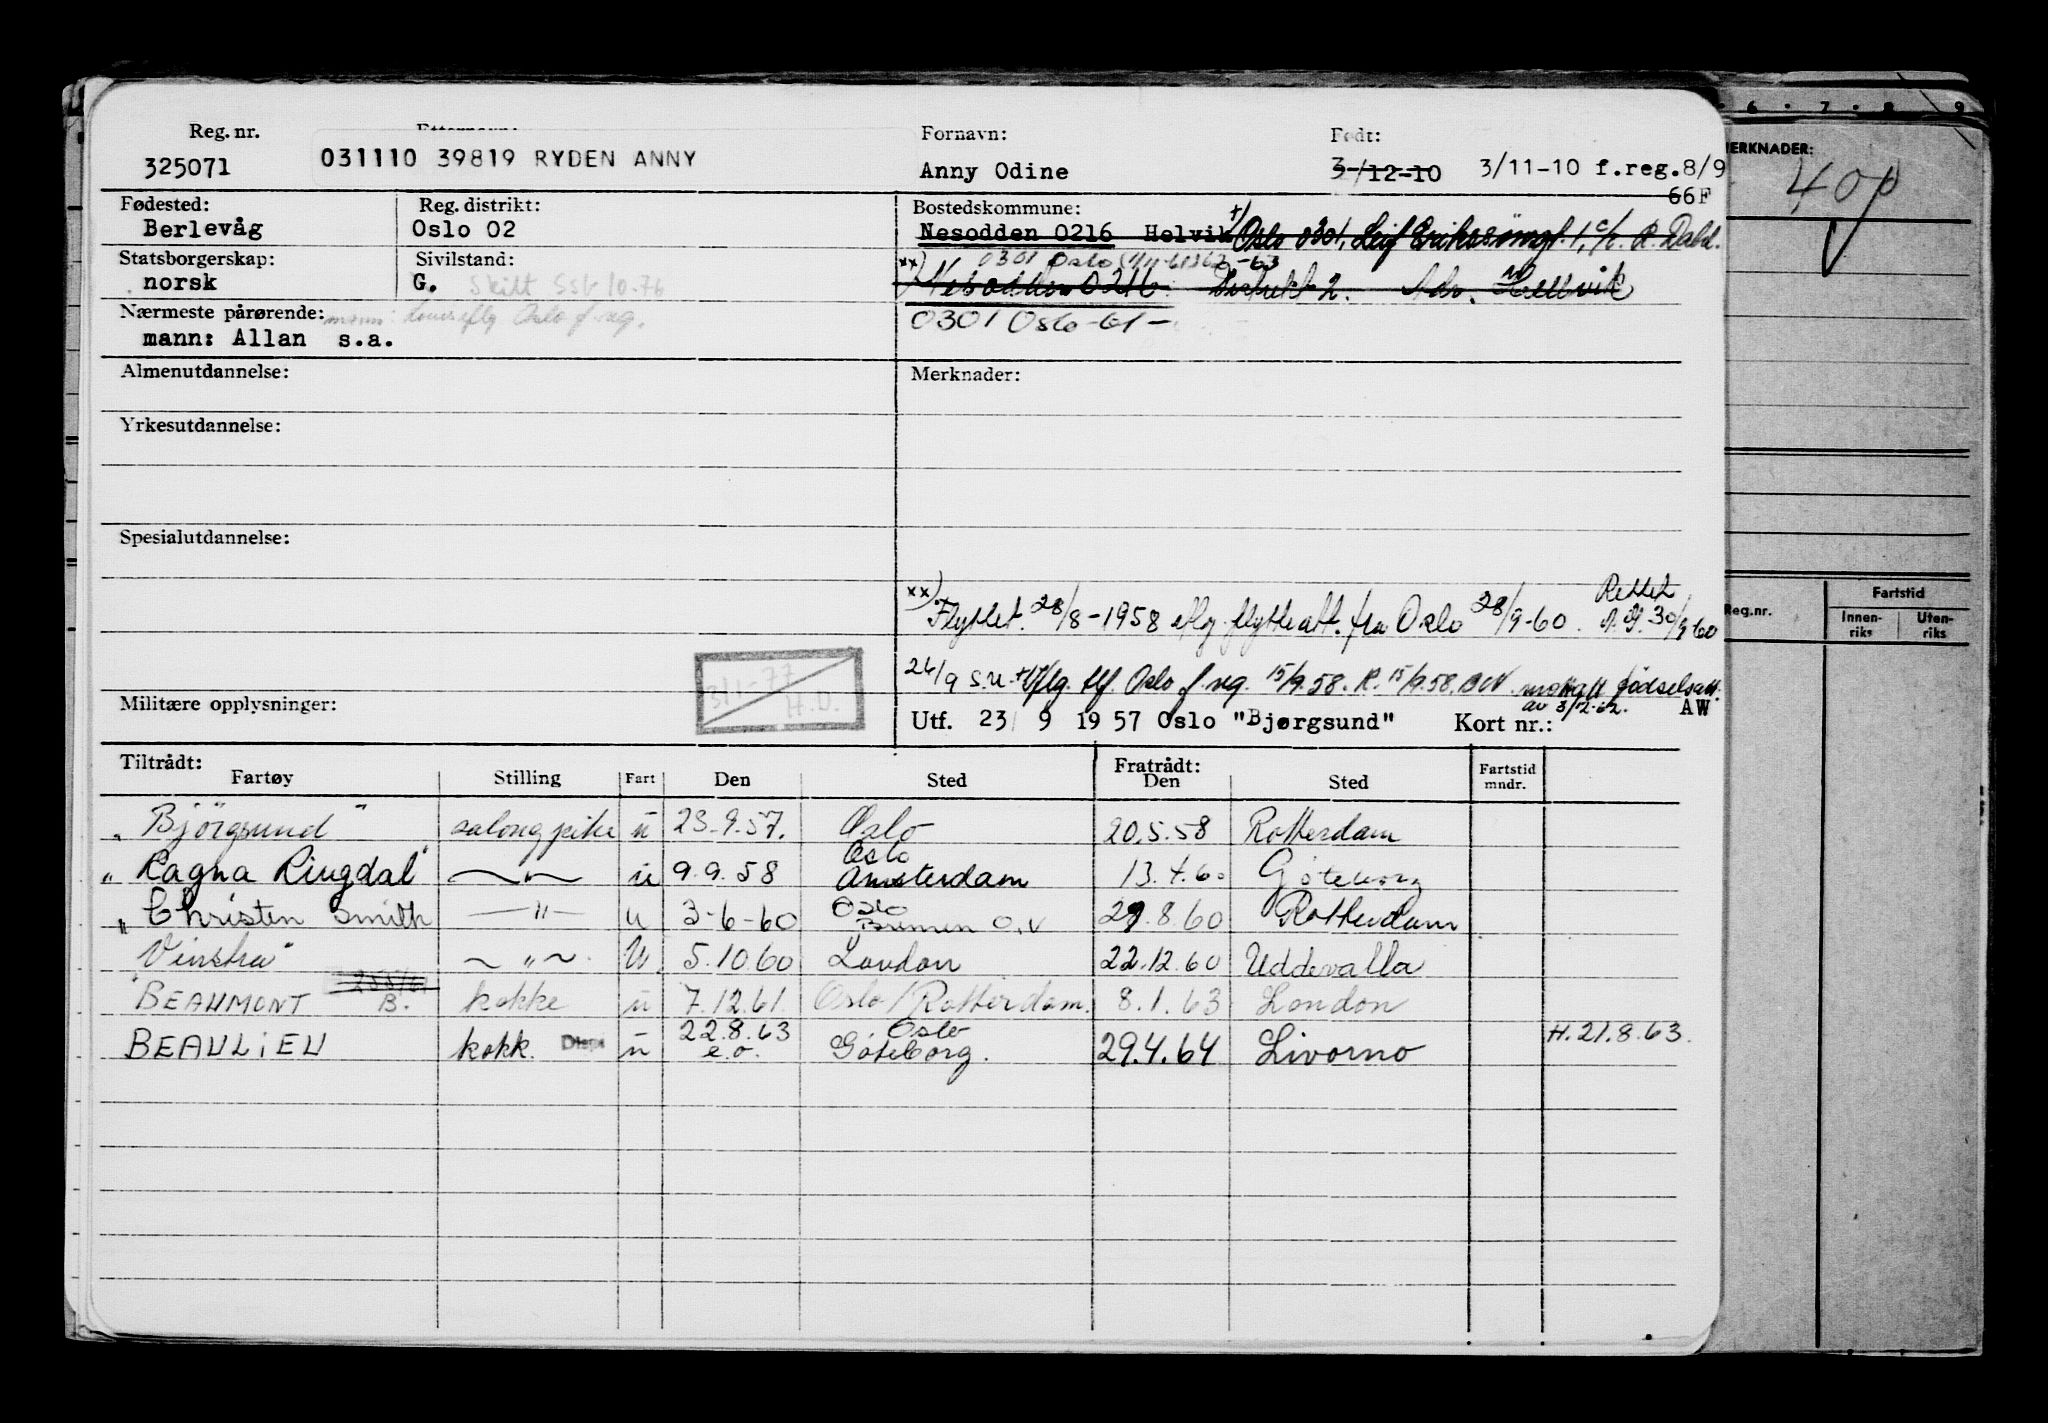 Reg. nr. Fornavn: Født:
325071 031110 39819 RYDEN ANNY Anny Odine 3/12-10 3/11-10 f.reg.8/9
66F
Fødested: Reg. distrikt: Bostedskommune:
Berlevåg Oslo 02 Nesodden 0216 Helvik +) Oslo 0301, Leif Erikssöngt. 1, c/o. R. Dabel.
Statsborgerskap: Sivilstand: xx) 0301 Oslo -63
norsk G. Skilt Ssb 10-76 Nesodden 0216. Distrikt 2. Adr. Hellvik
Nærmeste pårørende: mann: Oslo f. reg. 0301 Oslo -61-
mann: Allan s.a.
Almenutdannelse: Merknader:
Yrkesutdannelse:
Spesialutdannelse:
xx) Flyttet. 28/8-1958 iflg. flytteatt. fra Oslo 28/9-60. Rettet 30/9 60
24/9 s.u. +) Iflg. tlf. Oslo f. reg. 15/9.58. R. 15/9.58. mottatt fødselsatt.
av 3/12-62. AW
3/1-77
H.O.
Militære opplysninger: Utf. 23/ 9 1957 Oslo "Bjørgsund" Kort nr.:
Tiltrådt: Fratrådt: Fartstid
Fartøy Stilling Fart Den Sted Den Sted mndr.
"Bjørgsund" salongpike u 23.9.57. Oslo 20.5.58 Rotterdam
"Ragna Ringdal" —"— u 9.9.58 Oslo Amsterdam 13.4.60 Göteborg
"Christen Smith —"— u 3-6-60 Oslo Bremen O.V 29.8.60 Rotterdam
Vinstra" —"— u. 5.10.60 London 22.12.60 Uddevalla
"BEAUMONT B. kokke u 7.12.61 Oslo/Rotterdam. 8.1.63 London
BEAULIEU kokk. Disp. u 22.8.63 e.o. Oslo Göteborg. 29.4.64 Livorno H.21.8.63.
6 7 8 9
MERKNADER:
40p
Reg.nr. Fartstid
Innen-riks Uten-riks